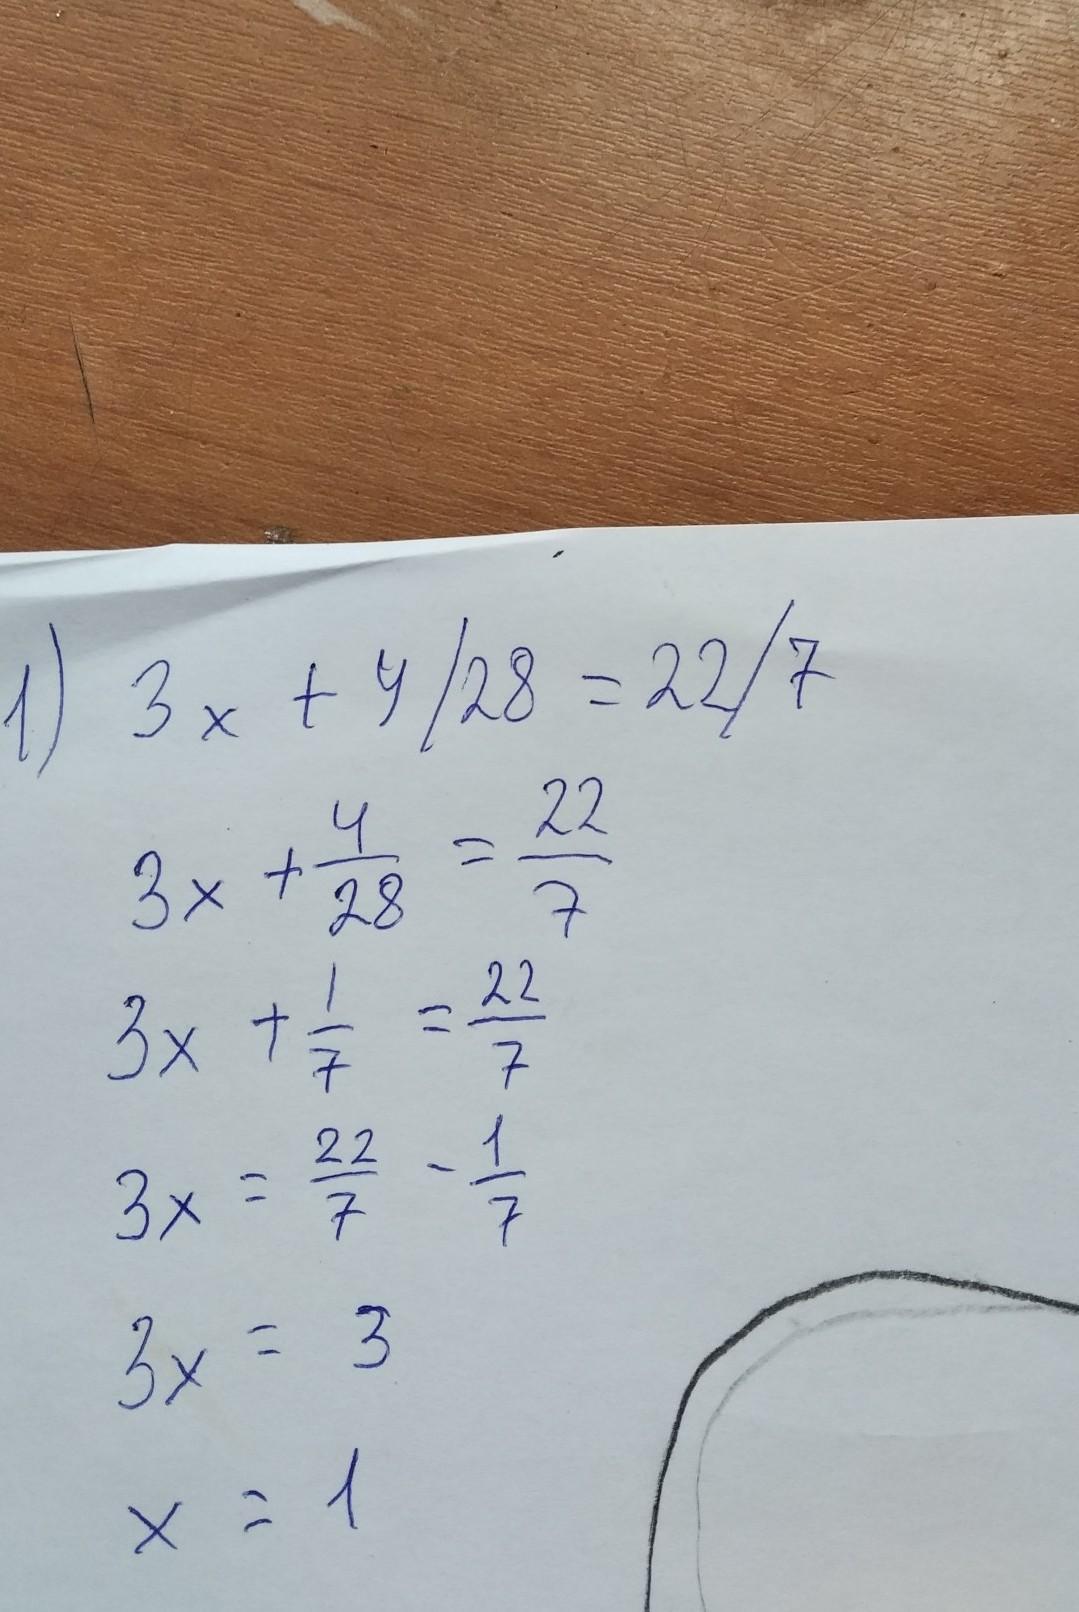 1) 3x + 4/28 = 22/7
3x + 4/28 = 22/7
3x + 1/7 = 22/7
3x = 22/7 - 1/7
3x = 3
x = 1